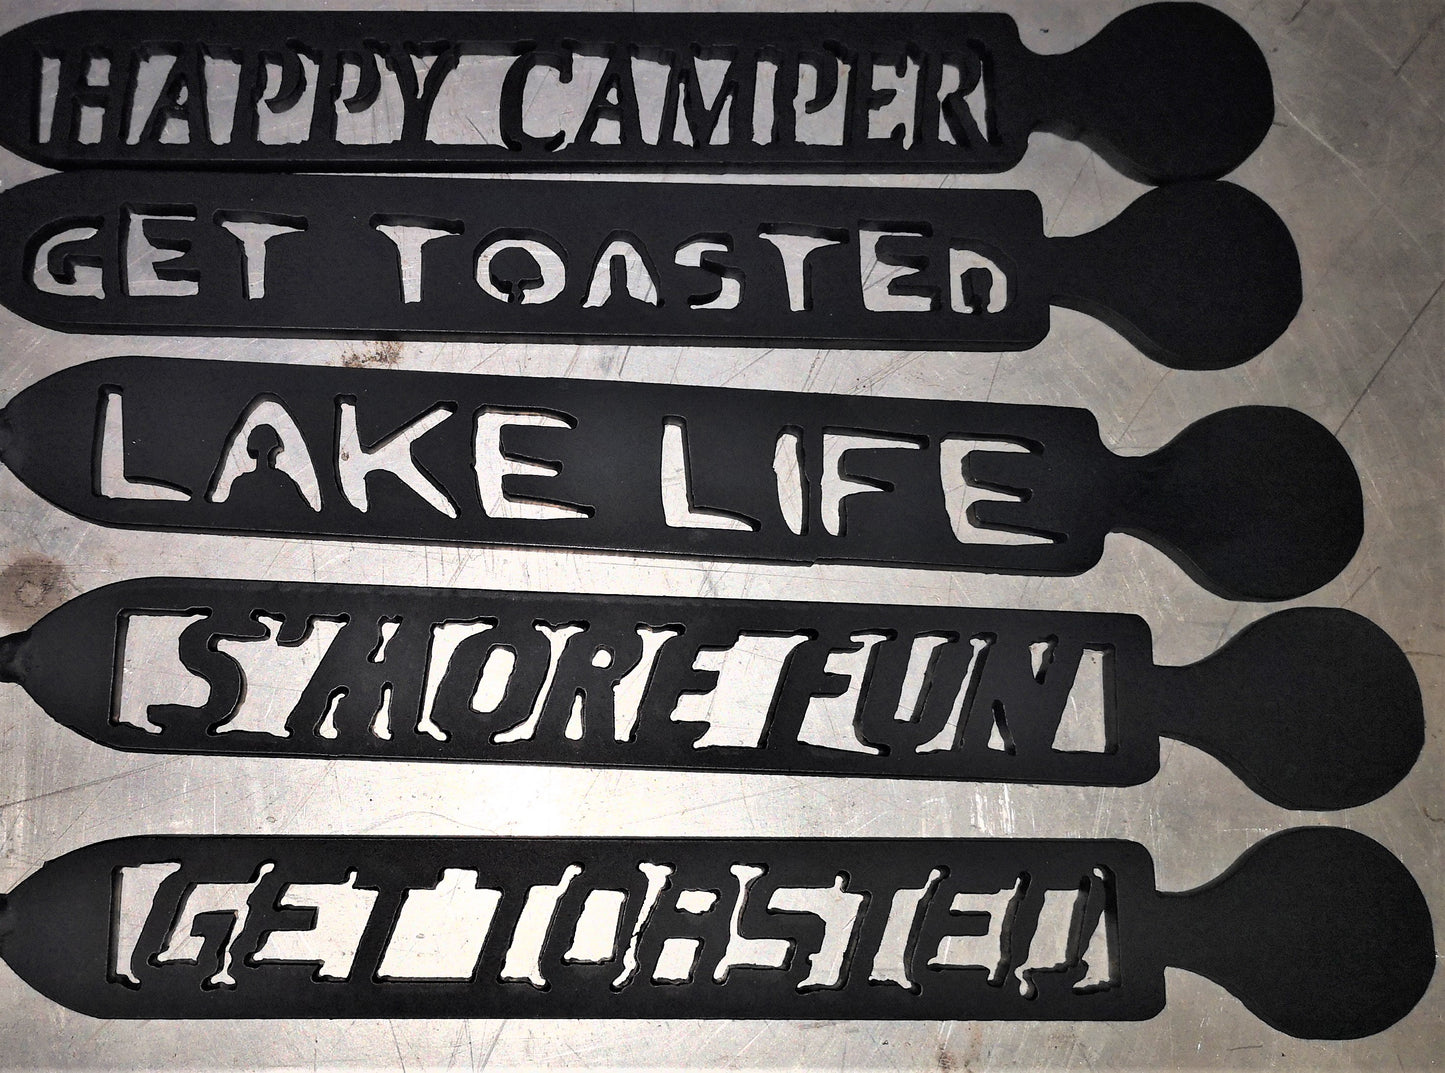 HAPPY CAMPER
GET TOASTED
LAKE LIFE
S'MORE FUN
GET TOASTED